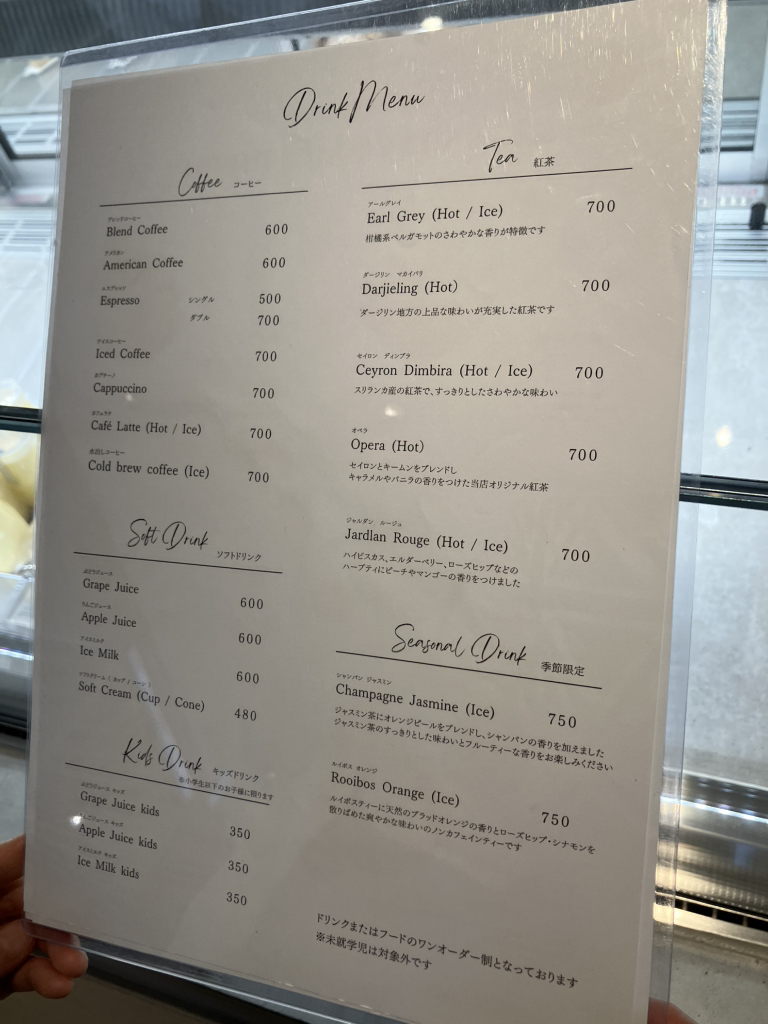 Drink Menu
Coffee コーヒー
ブレンドコーヒー
Blend Coffee 600
アメリカン
American Coffee 600
エスプレッソ
Espresso シングル 500
ダブル 700
アイスコーヒー
Iced Coffee 700
カプチーノ
Cappuccino 700
カフェラテ
Café Latte (Hot / Ice) 700
水出しコーヒー
Cold brew coffee (Ice) 700
Soft Drink ソフトドリンク
ぶどうジュース
Grape Juice 600
りんごジュース
Apple Juice 600
アイスミルク
Ice Milk 600
ソフトクリーム ( カップ / コーン )
Soft Cream (Cup / Cone) 480
Kids Drink キッズドリンク
※小学生以下のお子様に限ります
ぶどうジュース キッズ
Grape Juice kids 350
りんごジュース キッズ
Apple Juice kids 350
アイスミルク キッズ
Ice Milk kids 350
Tea 紅茶
アールグレイ
Earl Grey (Hot / Ice) 700
柑橘系ベルガモットのさわやかな香りが特徴です
ダージリン マカイバリ
Darjieling (Hot) 700
ダージリン地方の上品な味わいが充実した紅茶です
セイロン ディンブラ
Ceyron Dimbira (Hot / Ice) 700
スリランカ産の紅茶で、すっきりとしたさわやかな味わい
オペラ
Opera (Hot) 700
セイロンとキームンをブレンドし
キャラメルやバニラの香りをつけた当店オリジナル紅茶
ジャルダン ルージュ
Jardlan Rouge (Hot / Ice) 700
ハイビスカス、エルダーベリー、ローズヒップなどの
ハーブティにピーチやマンゴーの香りをつけました
Seasonal Drink 季節限定
シャンパン ジャスミン
Champagne Jasmine (Ice) 750
ジャスミン茶にオレンジピールをブレンドし、シャンパンの香りを加えました
ジャスミン茶のすっきりとした味わいとフルーティーな香りをお楽しみください
ルイボス オレンジ
Rooibos Orange (Ice) 750
ルイボスティーに天然のブラッドオレンジの香りとローズヒップ・シナモンを
散りばめた爽やかな味わいのノンカフェインティーです
ドリンクまたはフードのワンオーダー制となっております
※未就学児は対象外です